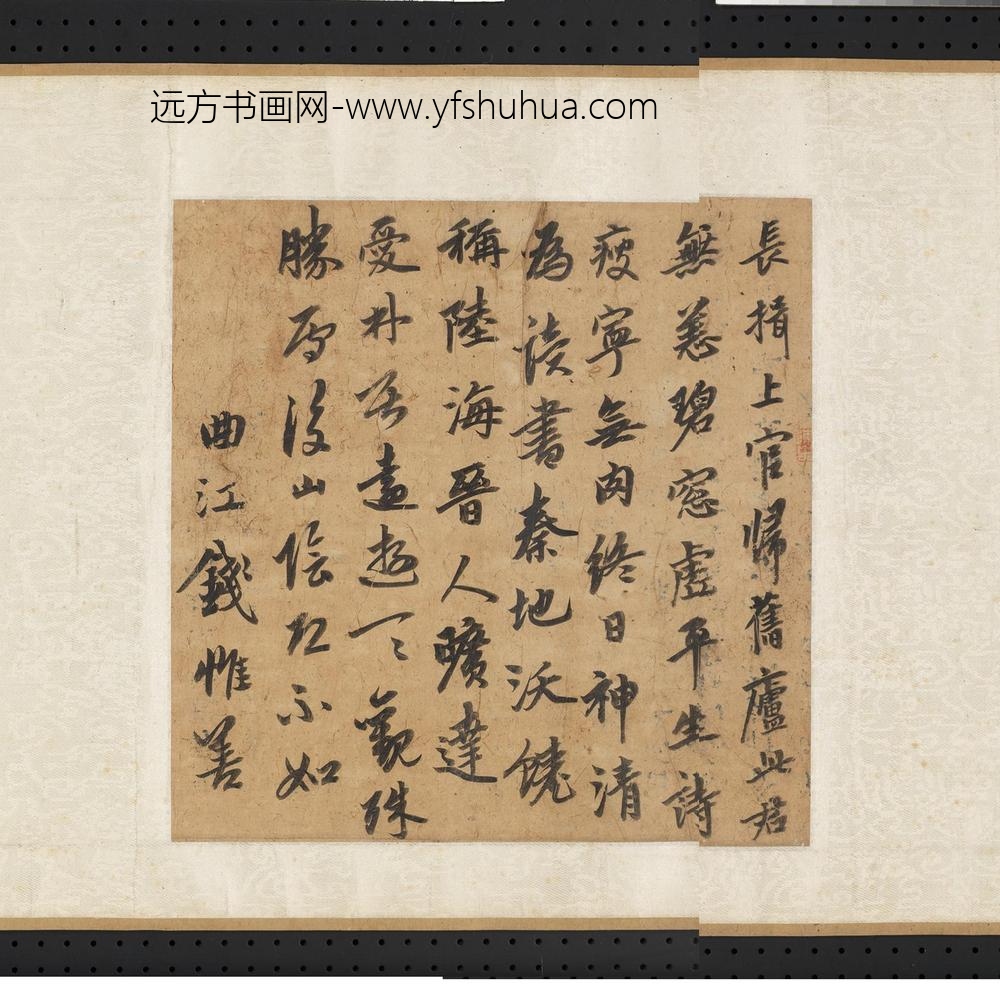 远方书画网-www.yfshuhua.com
長揖上官歸舊廬此君
無恙碧窓虛平生詩
瘦寧無肉終日神清
為讀書秦地沃饒
稱陸海晉人曠達
愛居遠遊一〻觀殊
勝後山陰不如
曲江錢惟善